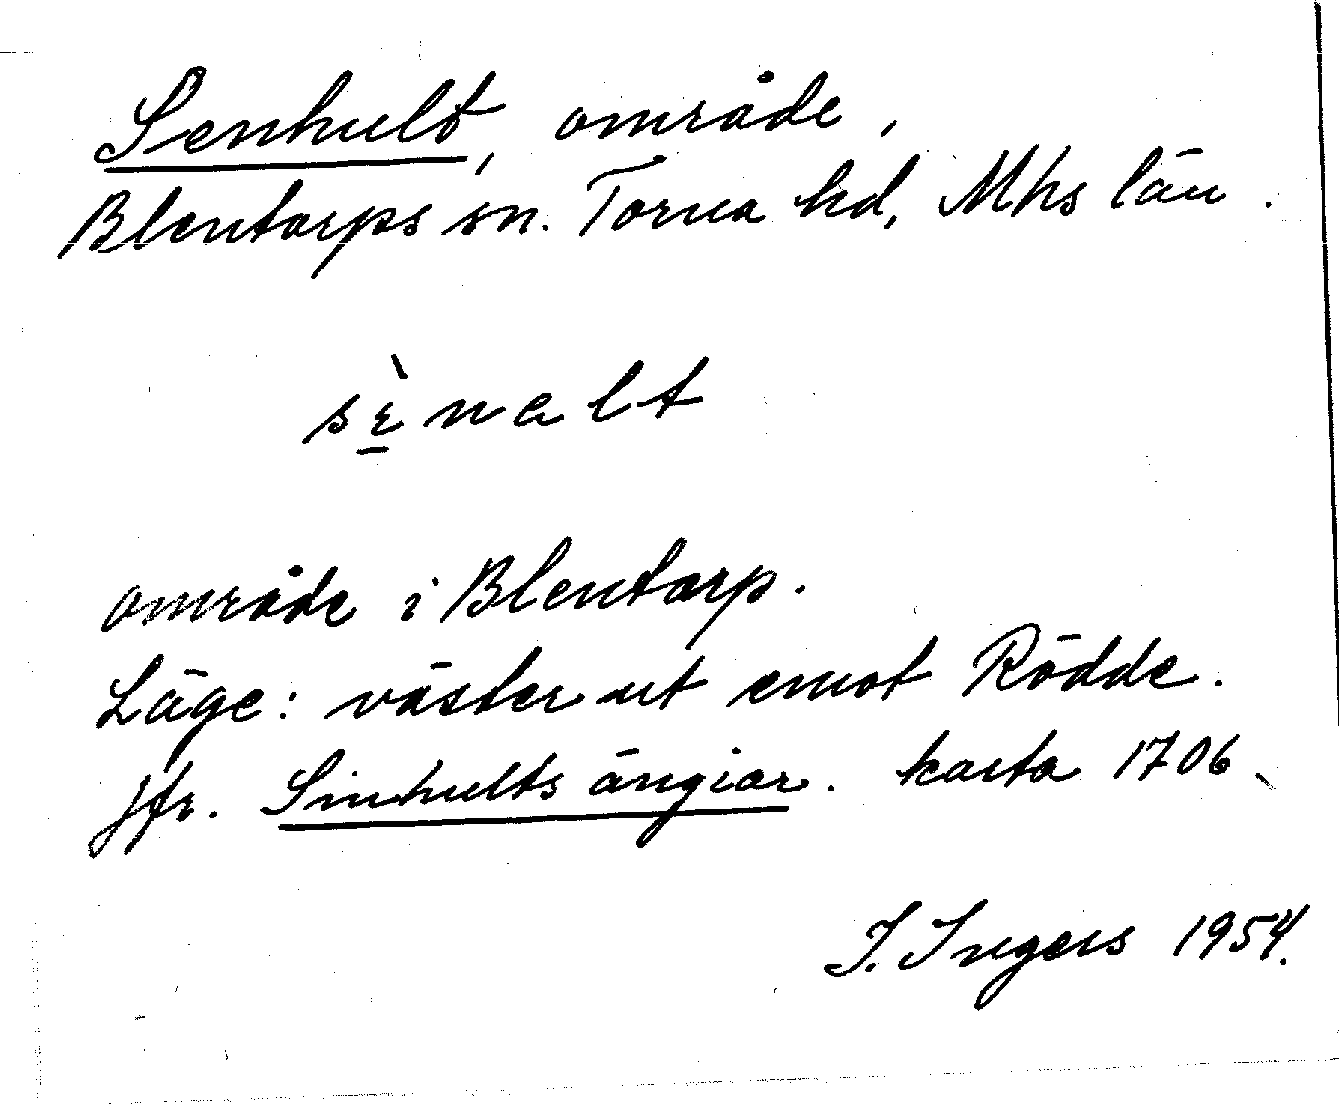 Senhult, område,
Blentarps sn. Torna hd, Mhs län.
sɛ̠̀nalt
område i Blentarp.
Läge: väster ut emot Rödde.
jfr. Sinhults ängiar. karta 1706.
I. Ingers 1954.